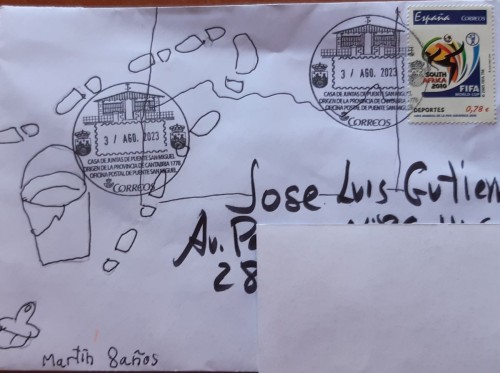 España CORREOS
SOUTH AFRICA 2010
FIFA
WORLD CUP
DEPORTES 0,78 €
3 / AGO. 2023
CASA DE JUNTAS DE PUENTE SAN MIGUEL
ORIGEN DE LA PROVINCIA DE CANTABRIA 1778
OFICINA POSTAL DE PUENTE SAN MIGUEL
CORREOS
3 / AGO. 2023
CASA DE JUNTAS DE PUENTE SAN MIGUEL
ORIGEN DE LA PROVINCIA DE CANTABRIA 1778
OFICINA POSTAL DE PUENTE SAN MIGUEL
CORREOS
Jose Luis Gutier
Av.
28
Martín 8 años